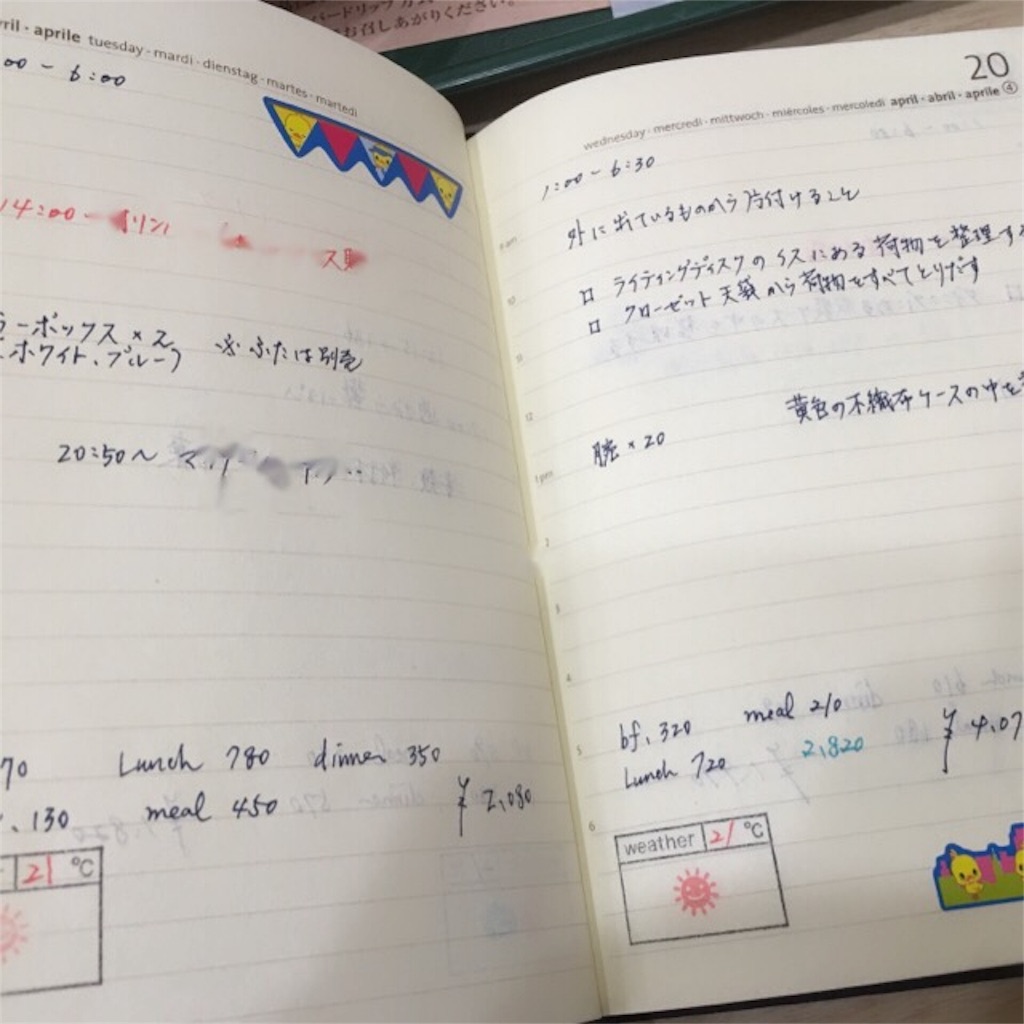 パードリップ方式
お召しあがりください。
ril・aprile tuesday・mardi・dienstag・martes・martedì
00 - 6:00
14:00 -
20:50～
ラーボックス × 2
ホワイト、ブルー
※ ふたは別売
70 Lunch 780 dinner 350
130 meal 450 ¥ 2,080
21 ℃
20
wednesday・mercredi・mittwoch・miércoles・mercoledì april・abril・aprile ④
1:00 - 6:30
外に出ているものから片付けること
□ ライティングディスクのイスにある荷物を整理す
□ クローゼット天袋から荷物をすべてとりだす
黄色の不織布ケースの中を
腕 × 20
bf. 320 meal 210
Lunch 720 2,820 ¥ 4,07
weather 21 ℃
9 am
10
11
12
1 pm
2
3
4
5
6